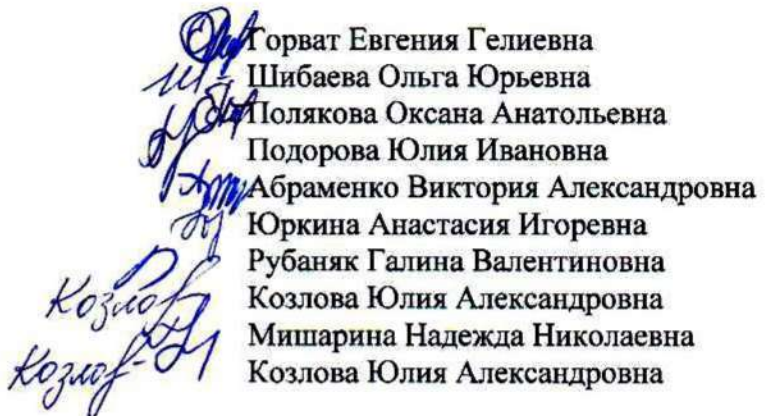 Горват Евгения Гелиевна
Шибаева Ольга Юрьевна
Полякова Оксана Анатольевна
Подорова Юлия Ивановна
Абраменко Виктория Александровна
Юркина Анастасия Игоревна
Рубаняк Галина Валентиновна
Козлов Козлова Юлия Александровна
Мишарина Надежда Николаевна
Козлов Козлова Юлия Александровна